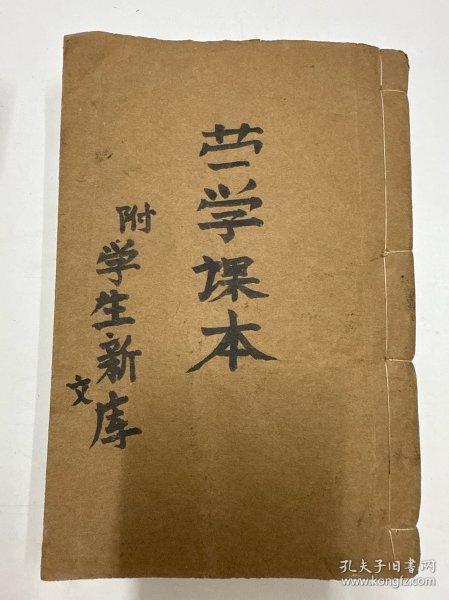 蒙学课本
附学生新文库
孔夫子旧书网
www.kongfz.com